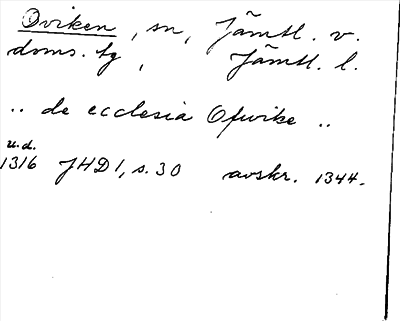 Oviken, sn, Jämtl. v.
doms. tg, Jämtl. l.
.. de ecclesia Ofwike ..
u.d.
1316 JHD 1, s. 30 avskr. 1344.